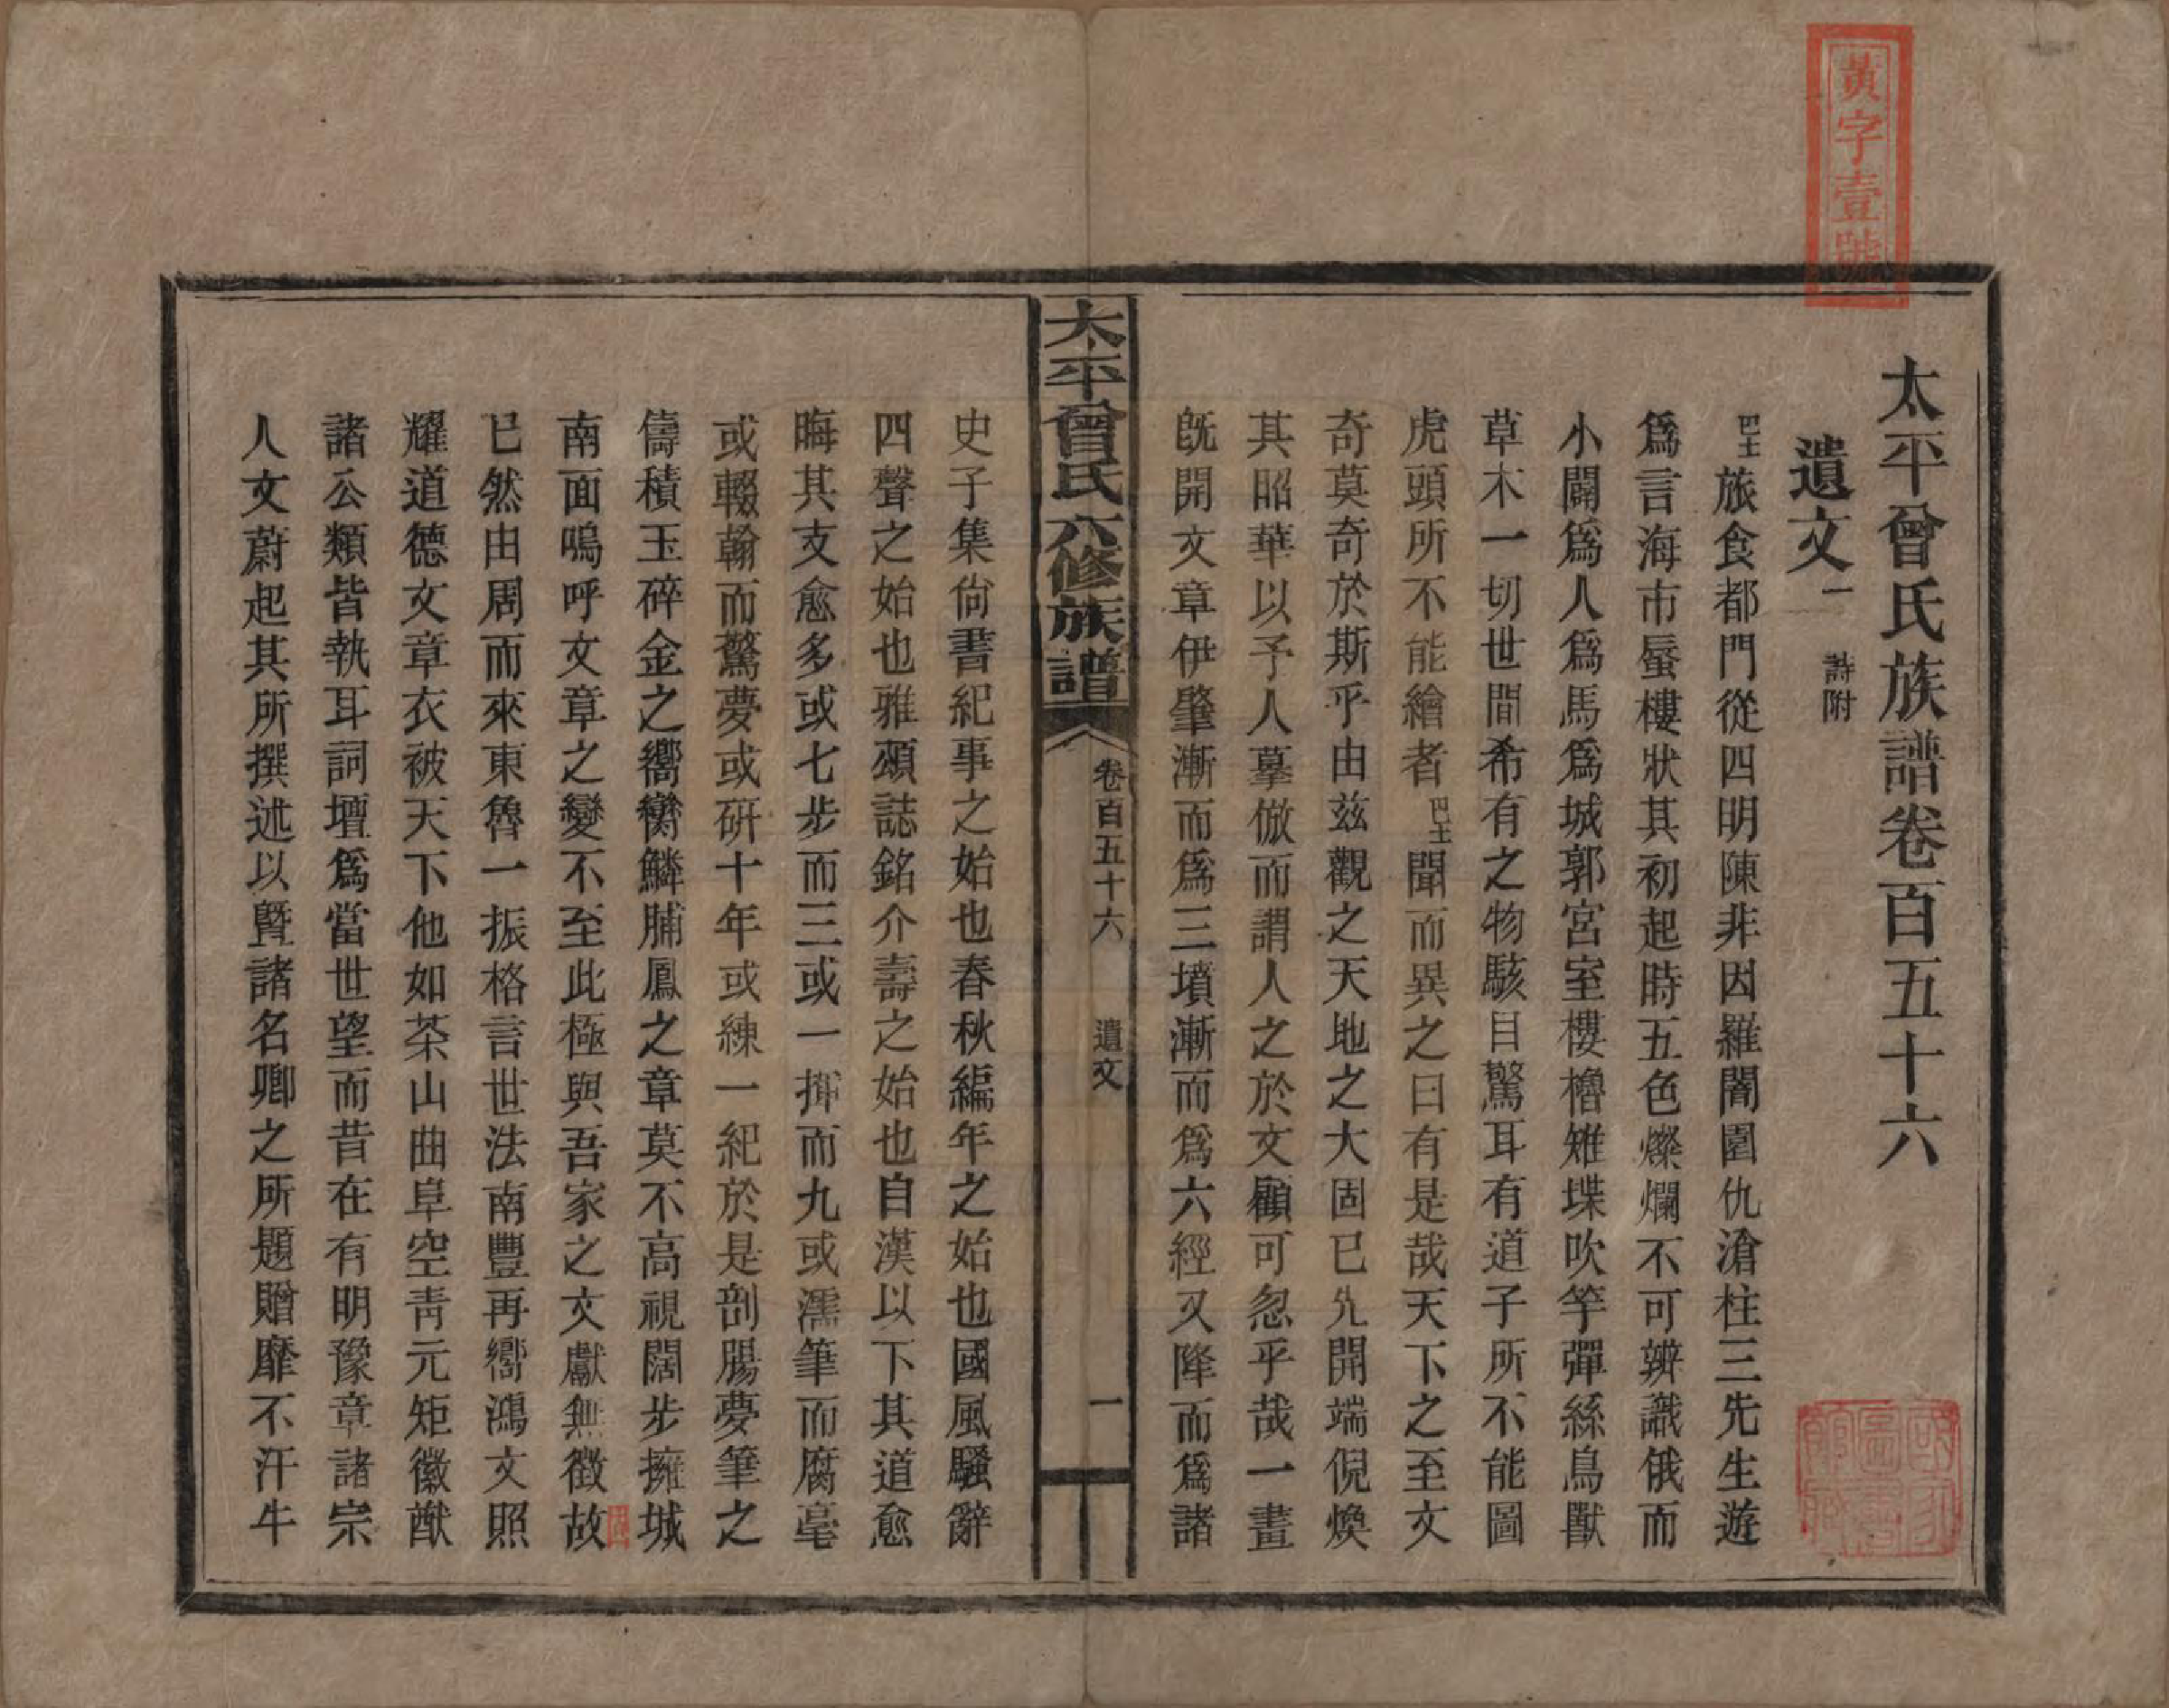 黃字壹號
太平曾氏族譜卷百五十六
遺文一 詩附
巴土旅食都門從四明陳非因羅闇圍仇滄柱三先生遊
爲言海市蜃樓狀其初起時五色燦爛不可辨識俄而
小闢爲人爲馬爲城郭宮室樓櫓雉堞吹竽彈絲鳥獸
草木一切世間希有之物駭目驚耳有道子所不能圖
虎頭所不能繪者巴土聞而異之曰有是哉天下之至文
奇莫奇於斯乎由茲觀之天地之大固已先開端倪煥
其昭華以予人摹倣而謂人之於文顧可忽乎哉一畫
既開文章伊肇漸而爲三墳漸而爲六經又降而爲諸
太平曾氏六修族譜 卷百五十六 遺文 一
史子集尙書紀事之始也春秋編年之始也國風騷辭
四聲之始也雅頌誌銘介壽之始也自漢以下其道愈
晦其支愈多或七步而三或一揮而九或濡筆而腐毫
或輟翰而驚夢或硏十年或練一紀於是剖腸夢筆之
儔積玉碎金之嚮臠鱗脯鳳之章莫不高視闊步擁城
南面嗚呼文章之變不至此極與吾家之文獻無徵故
已然由周而來東魯一振格言世法南豐再嚮鴻文照
耀道德文章衣被天下他如茶山曲阜空靑元矩徽猷
諸公類皆執耳詞壇爲當世望而昔在有明豫章諸宗
人文蔚起其所撰述以曁諸名卿之所題贈靡不汗牛